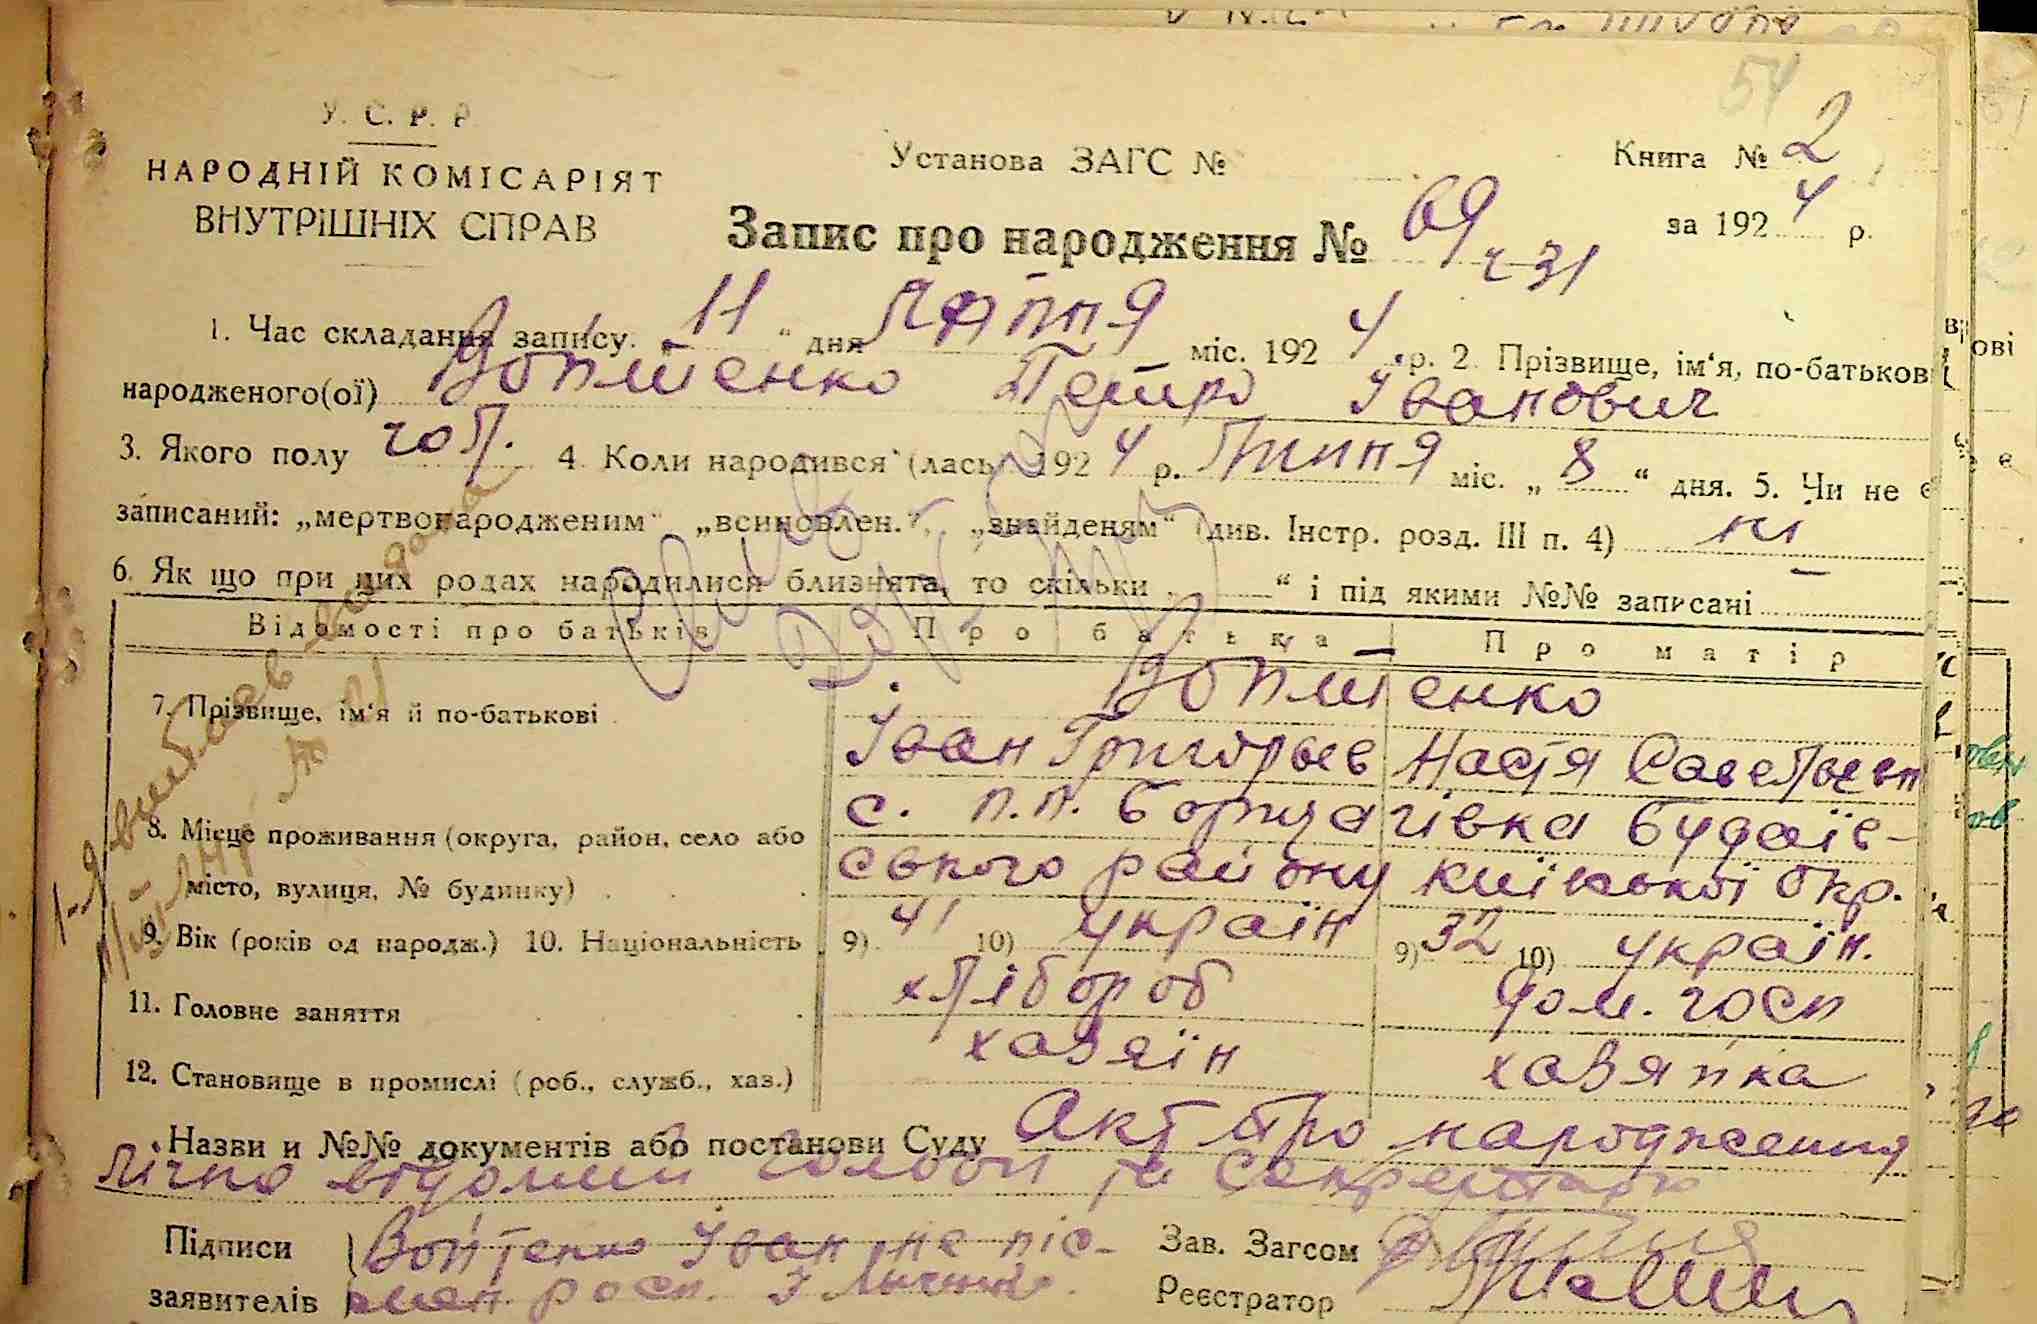 54
У. С. Р. Р.
НАРОДНІЙ КОМІСАРІЯТ
ВНУТРІШНІХ СПРАВ
Установа ЗАГС №
Книга № 2
за 1924 р.
Запис про народження № 69 ч 31
1. Час складання запису „ 11 “ дня липня міс. 1924 р. 2. Прізвище, ім‘я, по-батькові
народженого(ої) Войтенко Петро Іванович
3. Якого полу чол. 4. Коли народився (лась) 1924 р. липня міс. „ 8 “ дня. 5. Чи не є
записаний: „мертвонародженим“ „всиновлен.“, „знайденям“ (див. Інстр. розд. III п. 4) ні
6. Як що при цих родах народилися близнята, то скільки „ “ і під якими №№ записані
Відомості про батьків Про батька Про матір
7. Прізвище, ім‘я й по-батькові Войтенко
Іван Григорьев Настя Савельевн
8. Місце проживання (округа, район, село або с. п.п. Борщагівка Будаїв-
місто, вулиця, № будинку) ського району Київської окр.
9. Вік (років од народж.) 10. Національність 9) 41 10) україн 9) 32 10) україн.
11. Головне заняття хлібороб дом. госп
12. Становище в промислі (роб., служб., хаз.) хазяїн хазяйка
Назви и №№ документів або постанови Суду Акт про народження
лічно відомий голові та секретарю
Підписи Войтенко Іван не піс-
заявителів мен росп. з
Зав. Загсом
Реєстратор